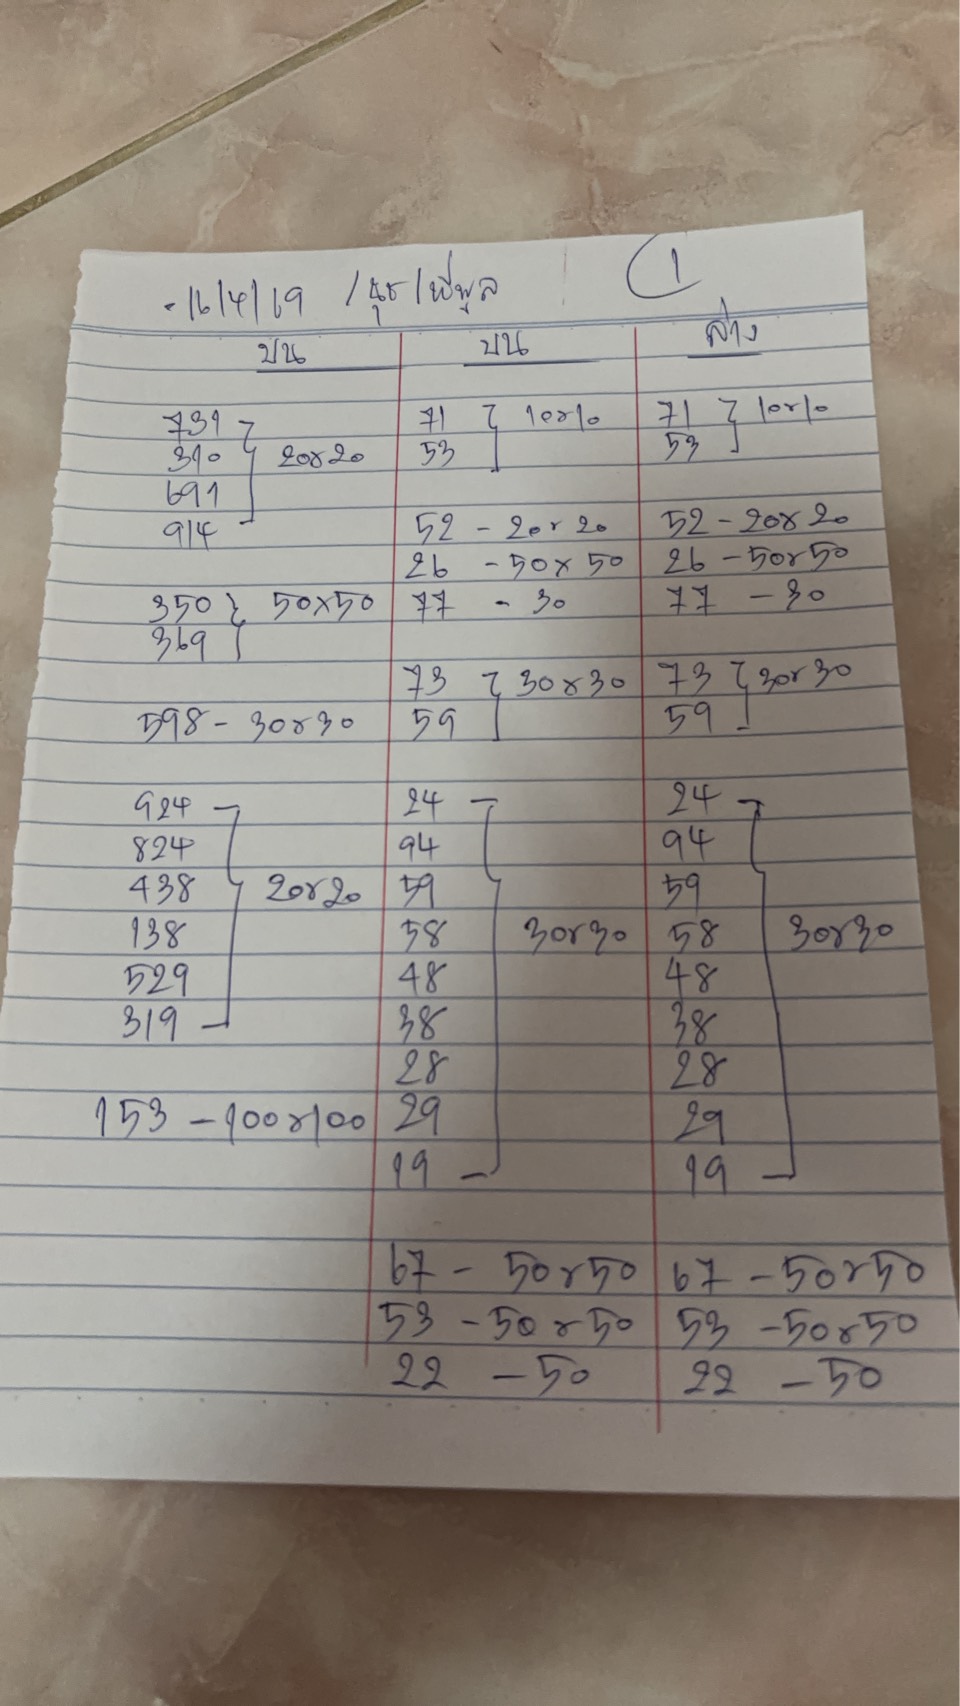 16/4/69 /นุช/พี่พูล 1
บน บน ล่าง
731 71 10x10 71 10x10
310 20x20 53 53
691
914 52 - 20x20 52 - 20x20
26 - 50x50 26 - 50x50
350 50x50 77 - 30 77 - 30
369
73 30x30 73 30x30
598 - 30x30 59 59
924 24 24
824 94 94
438 20x20 59 59
138 58 30x30 58 30x30
529 48 48
319 38 38
28 28
153 - 100x100 29 29
19 19
67 - 50x50 67 - 50x50
53 - 50x50 53 - 50x50
22 - 50 22 - 50